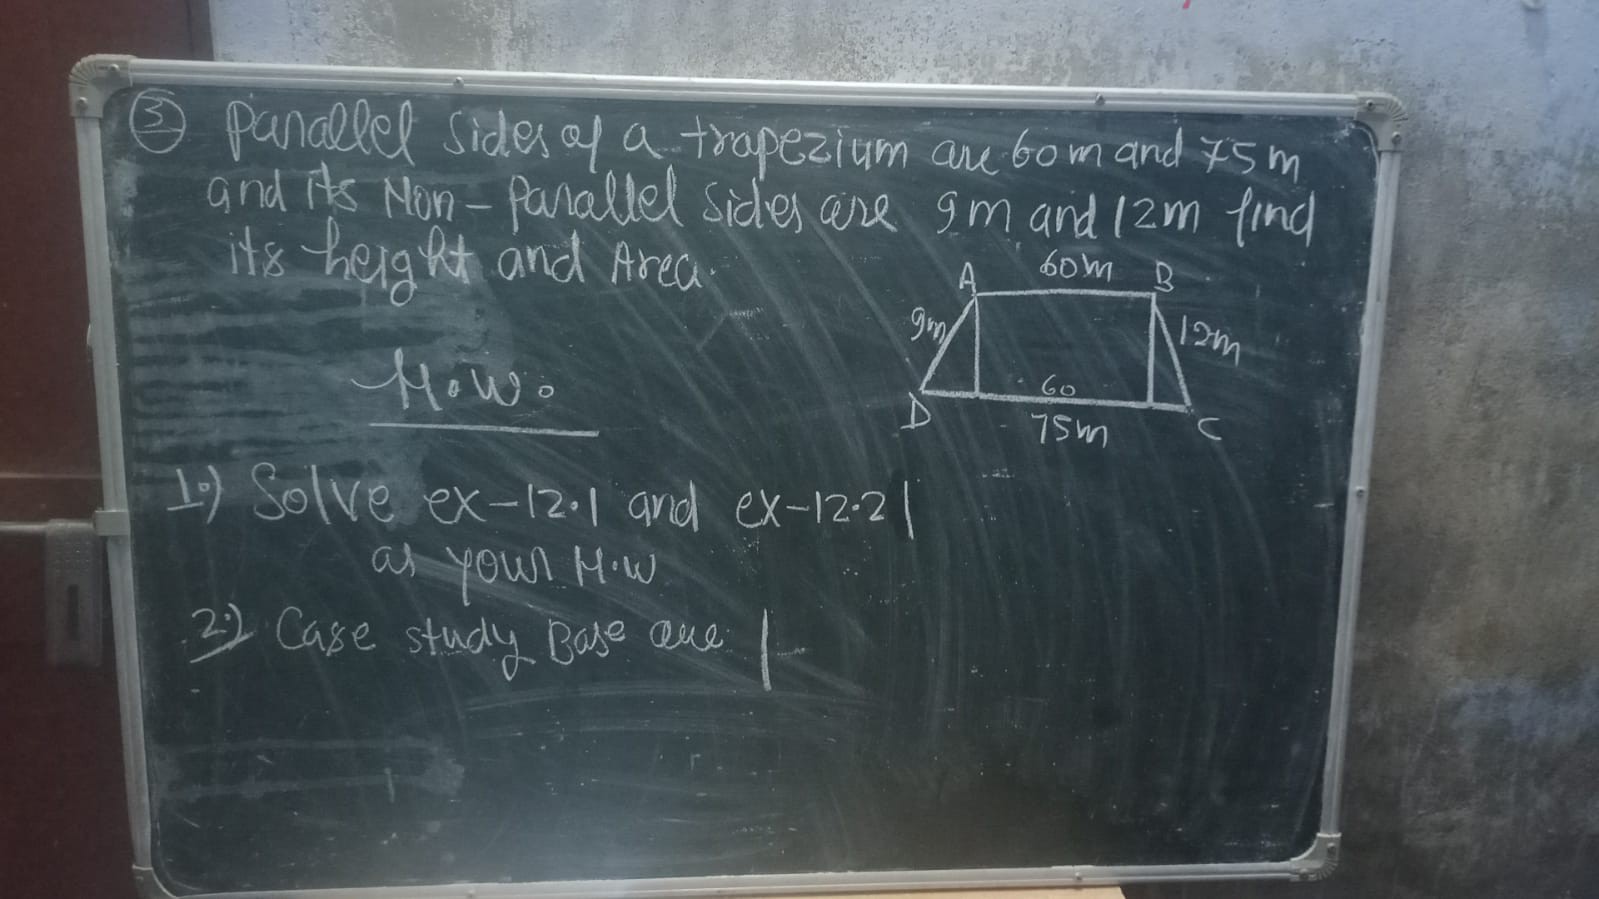 ③ Parallel sides of a trapezium are 60m and 75m
and its Non-Parallel sides are 9m and 12m find
its height and Area.
60m
A B
9m 12m
60
D C
75m
H.W.
1.) Solve ex-12.1 and ex-12.2|
as your H.W
2.) Case study Base que |